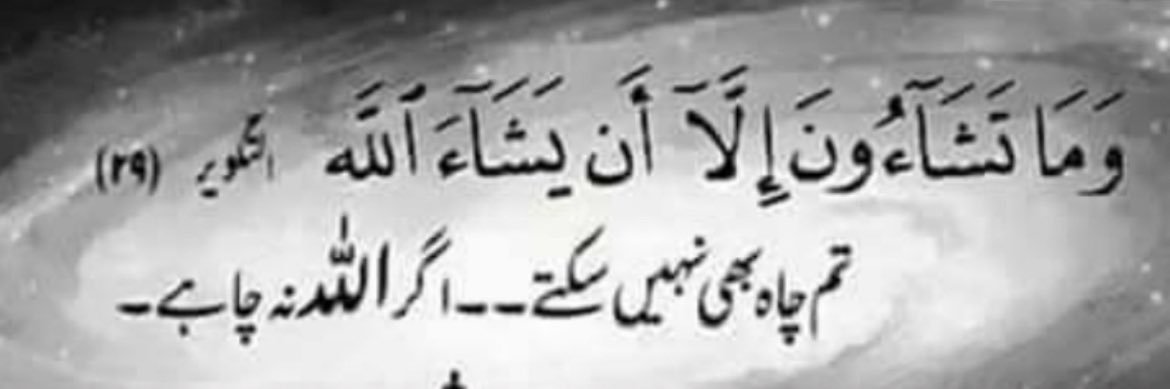 وَمَا تَشَآءُونَ إِلَّآ أَن يَشَآءَ ٱللَّه التکویر (۲۹)
تم چاہ بھی نہیں سکتے۔۔اگر اللہ نہ چاہے۔